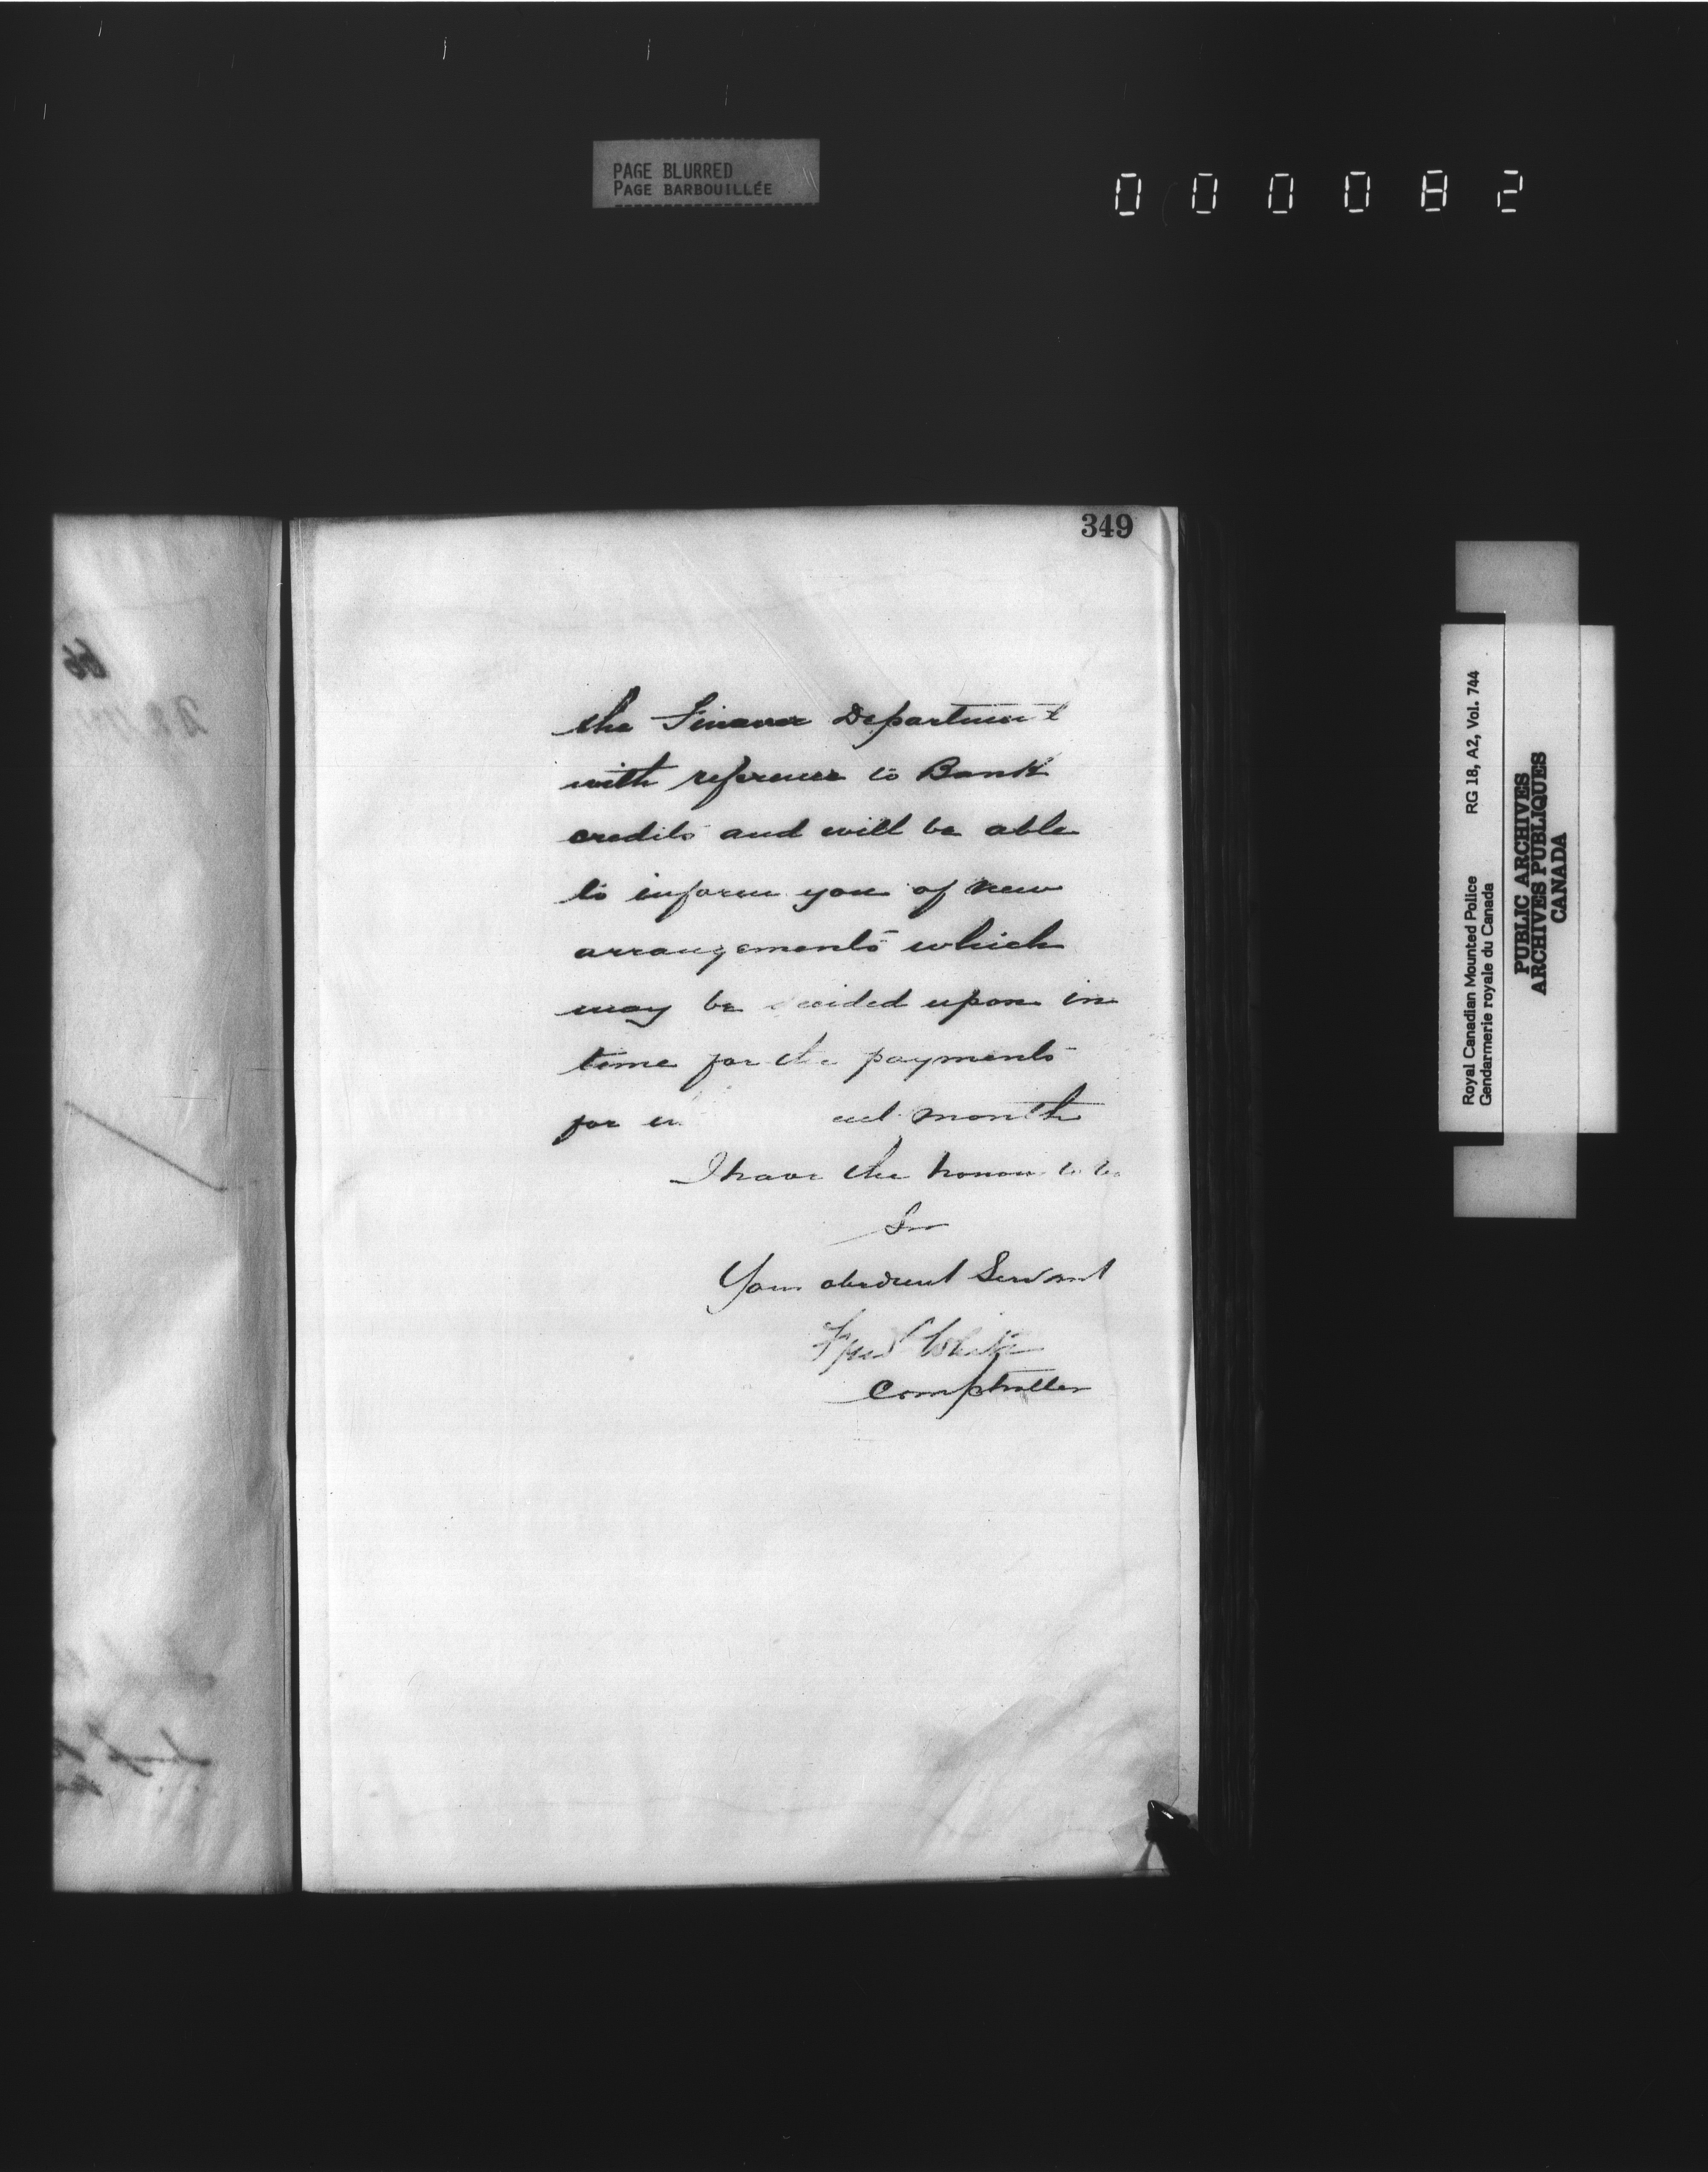 PAGE BLURRED
PAGE BARBOUILLÉE
000082
349
the Finance Department
with reference to Bank
credits and will be able
to inform you of new
arrangements which
may be decided upon in
time for the payments
for month
I have the honour to be
Sir
Your obedient Servant
Fred White
Comptroller
Royal Canadian Mounted Police RG 18, A2, Vol. 744
Gendarmerie royale du Canada
PUBLIC ARCHIVES
ARCHIVES PUBLIQUES
CANADA